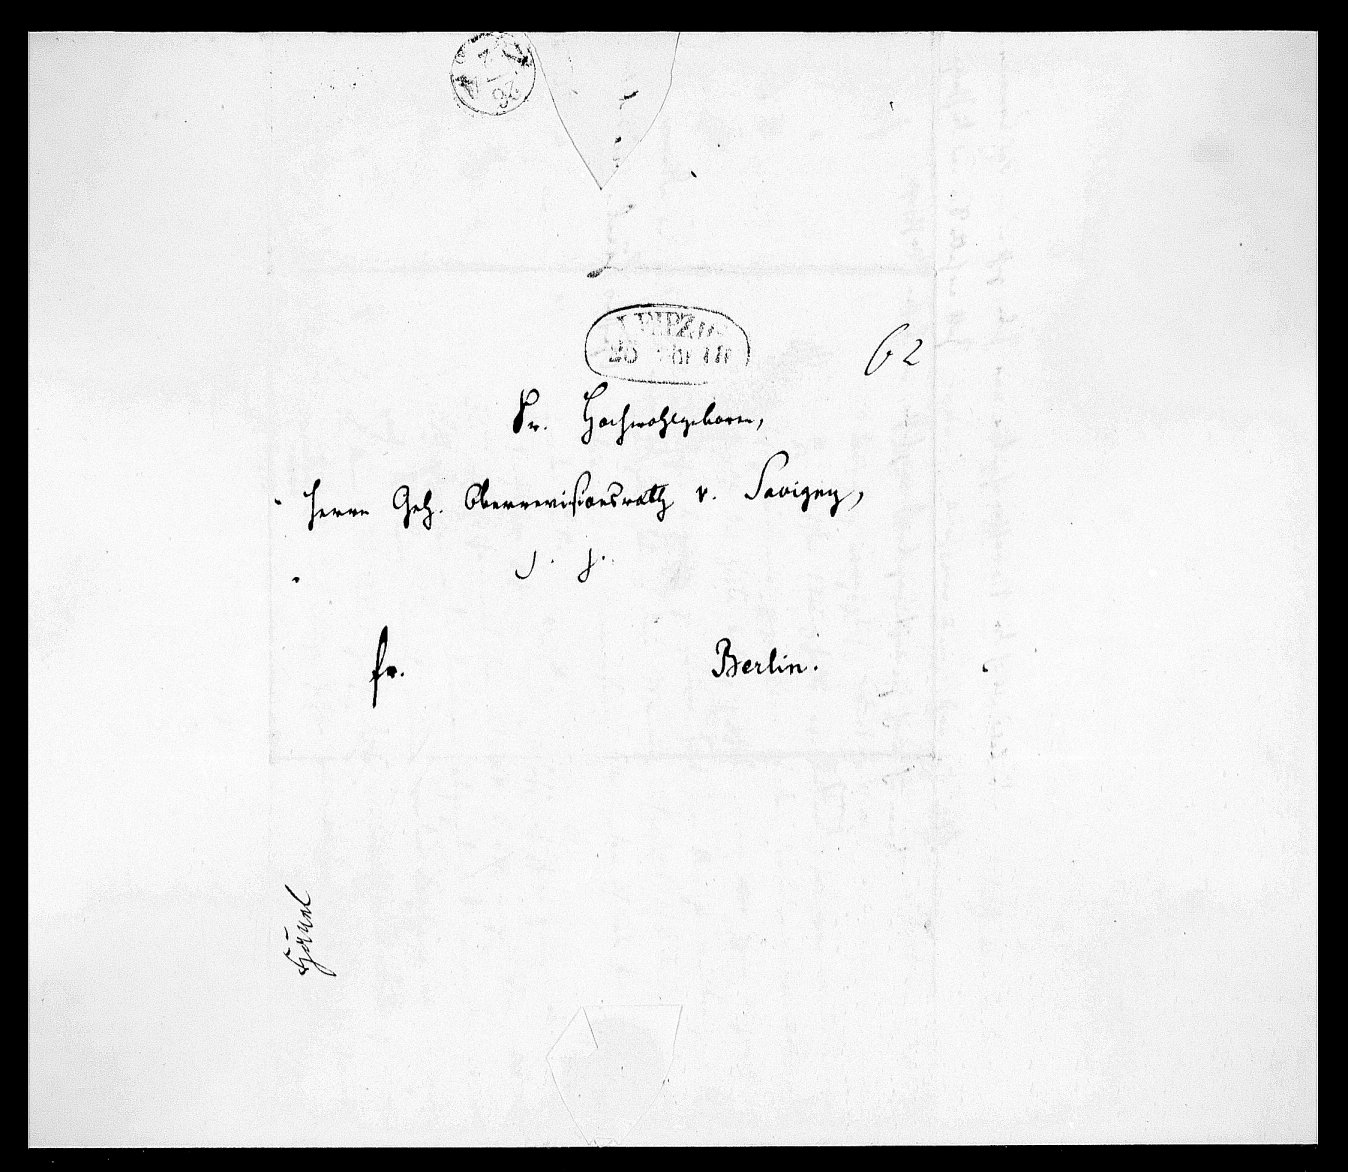 LEIPZIG
25
62
Sr. Hochwohlgeboren,
Herrn Geh. Oberrevisionsrath v. Savigny,
Berlin.
fr.
Hänel